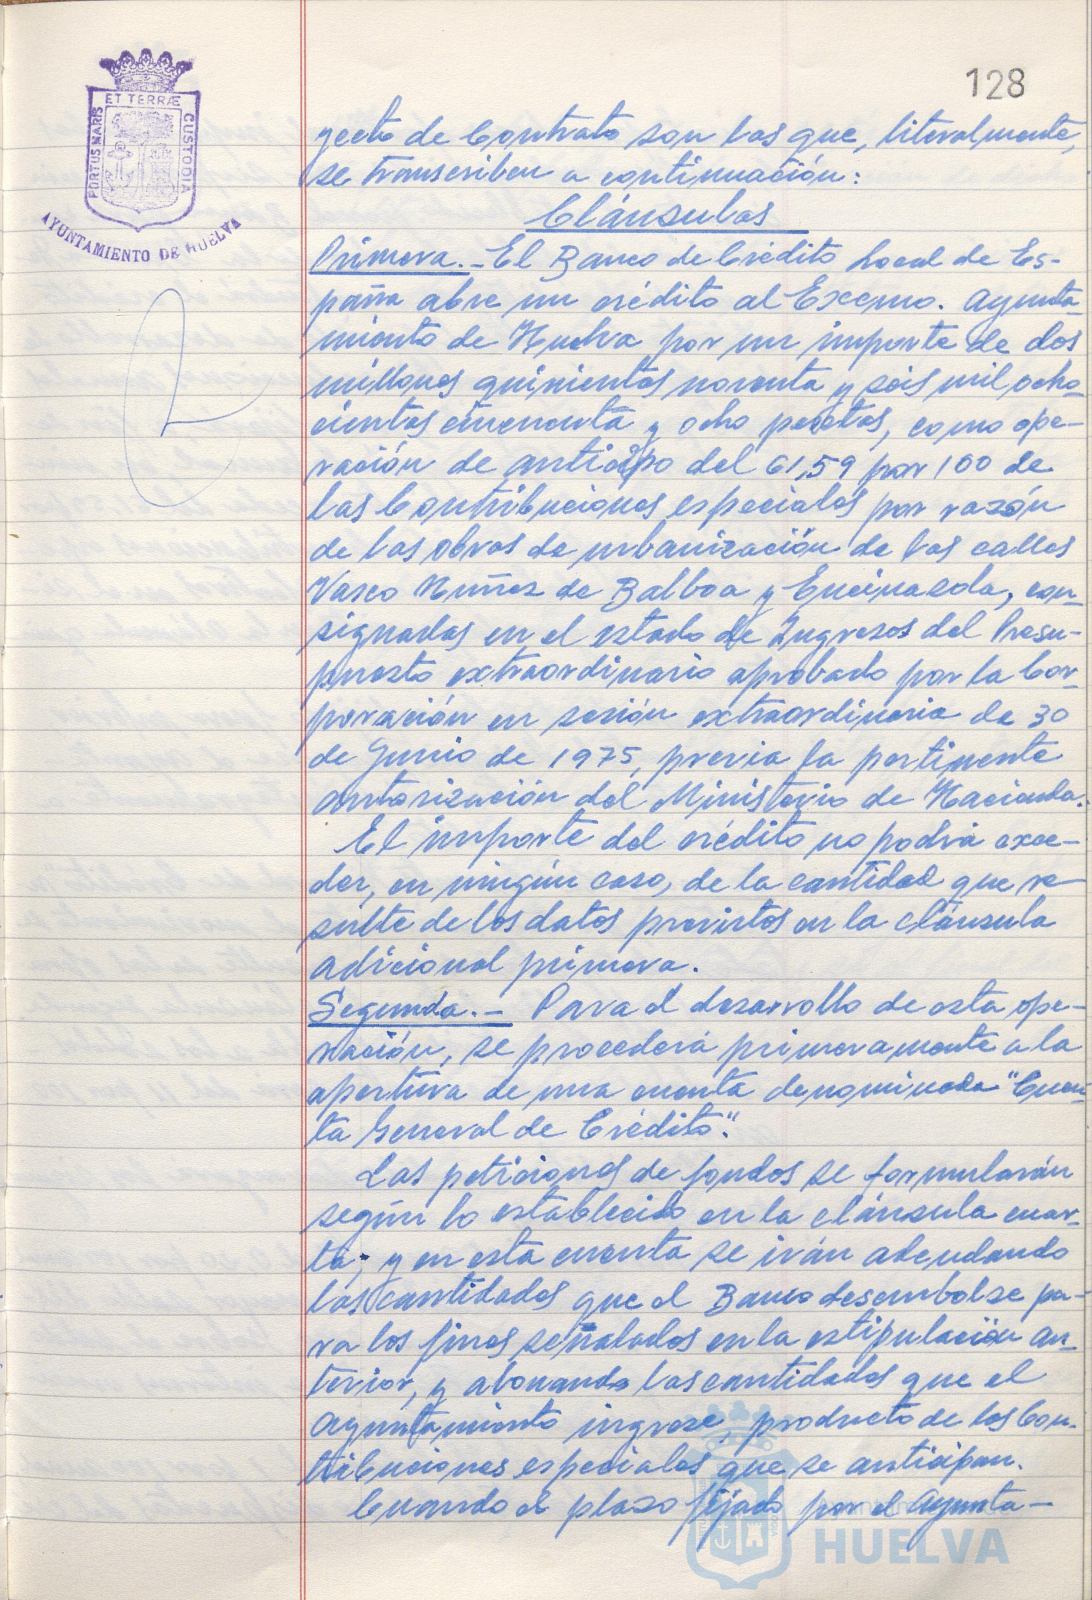 128
ET TERRÆ
PORTUS MARIS
CUSTODIA
AYUNTAMIENTO DE HUELVA
yecto de Contrato son las que, literalmente,
se transcriben a continuación:
Cláusulas
Primera.- El Banco de Crédito Local de Es-
paña abre un crédito al Excmo. Ayunta-
miento de Huelva por un importe de dos
millones quinientos noventa y seis mil ocho-
cientos cincuenta y ocho pesetas, como ope-
ración de anticipo del 61,59 por 100 de
las Contribuciones especiales por razón
de las obras de urbanización de las calles
Vasco Nuñez de Balboa y Encinasola, con-
signadas en el estado de Ingresos del Presu-
puesto extraordinario aprobado por la Cor-
poración en sesión extraordinaria de 30
de Junio de 1975, previa la pertinente
autorización del Ministerio de Hacienda.
El importe del crédito no podrá exce-
der, en ningún caso, de la cantidad que re-
sulte de los datos previstos en la cláusula
adicional primera.
Segunda.- Para el desarrollo de esta ope-
ración, se procederá primeramente a la
apertura de una cuenta denominada "Cuen-
ta General de Crédito".
Las peticiones de fondos se formularán
según lo establecido en la cláusula cuar-
ta; y en esta cuenta se irán adeudando
las cantidades que el Banco desembolse pa-
ra los fines señalados en la estipulación an-
terior, y abonando las cantidades que el
Ayuntamiento ingrese, producto de las Con-
tribuciones especiales que se anticipan.
Cuando el plazo fijado por el Ayunta-
HUELVA